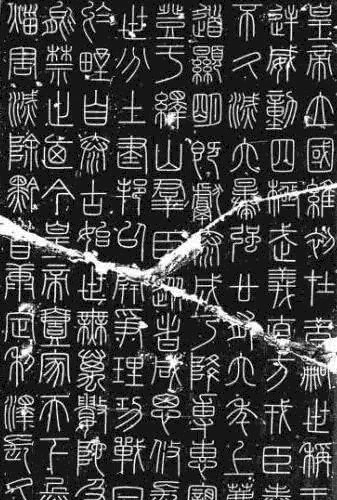 皇帝立國維初在昔嗣世稱王
逆威動四極武義直方戎臣奉
不久滅六暴強廿有六年上薦
道顯明既獻泰成乃降專惠親
登于繹山群臣從者咸思攸長
世分土建邦以開爭理功戰日
於野自泰古始世無萬數陀及
能禁止乃今皇帝壹家天下兵
災害滅除黔首康定利澤長久